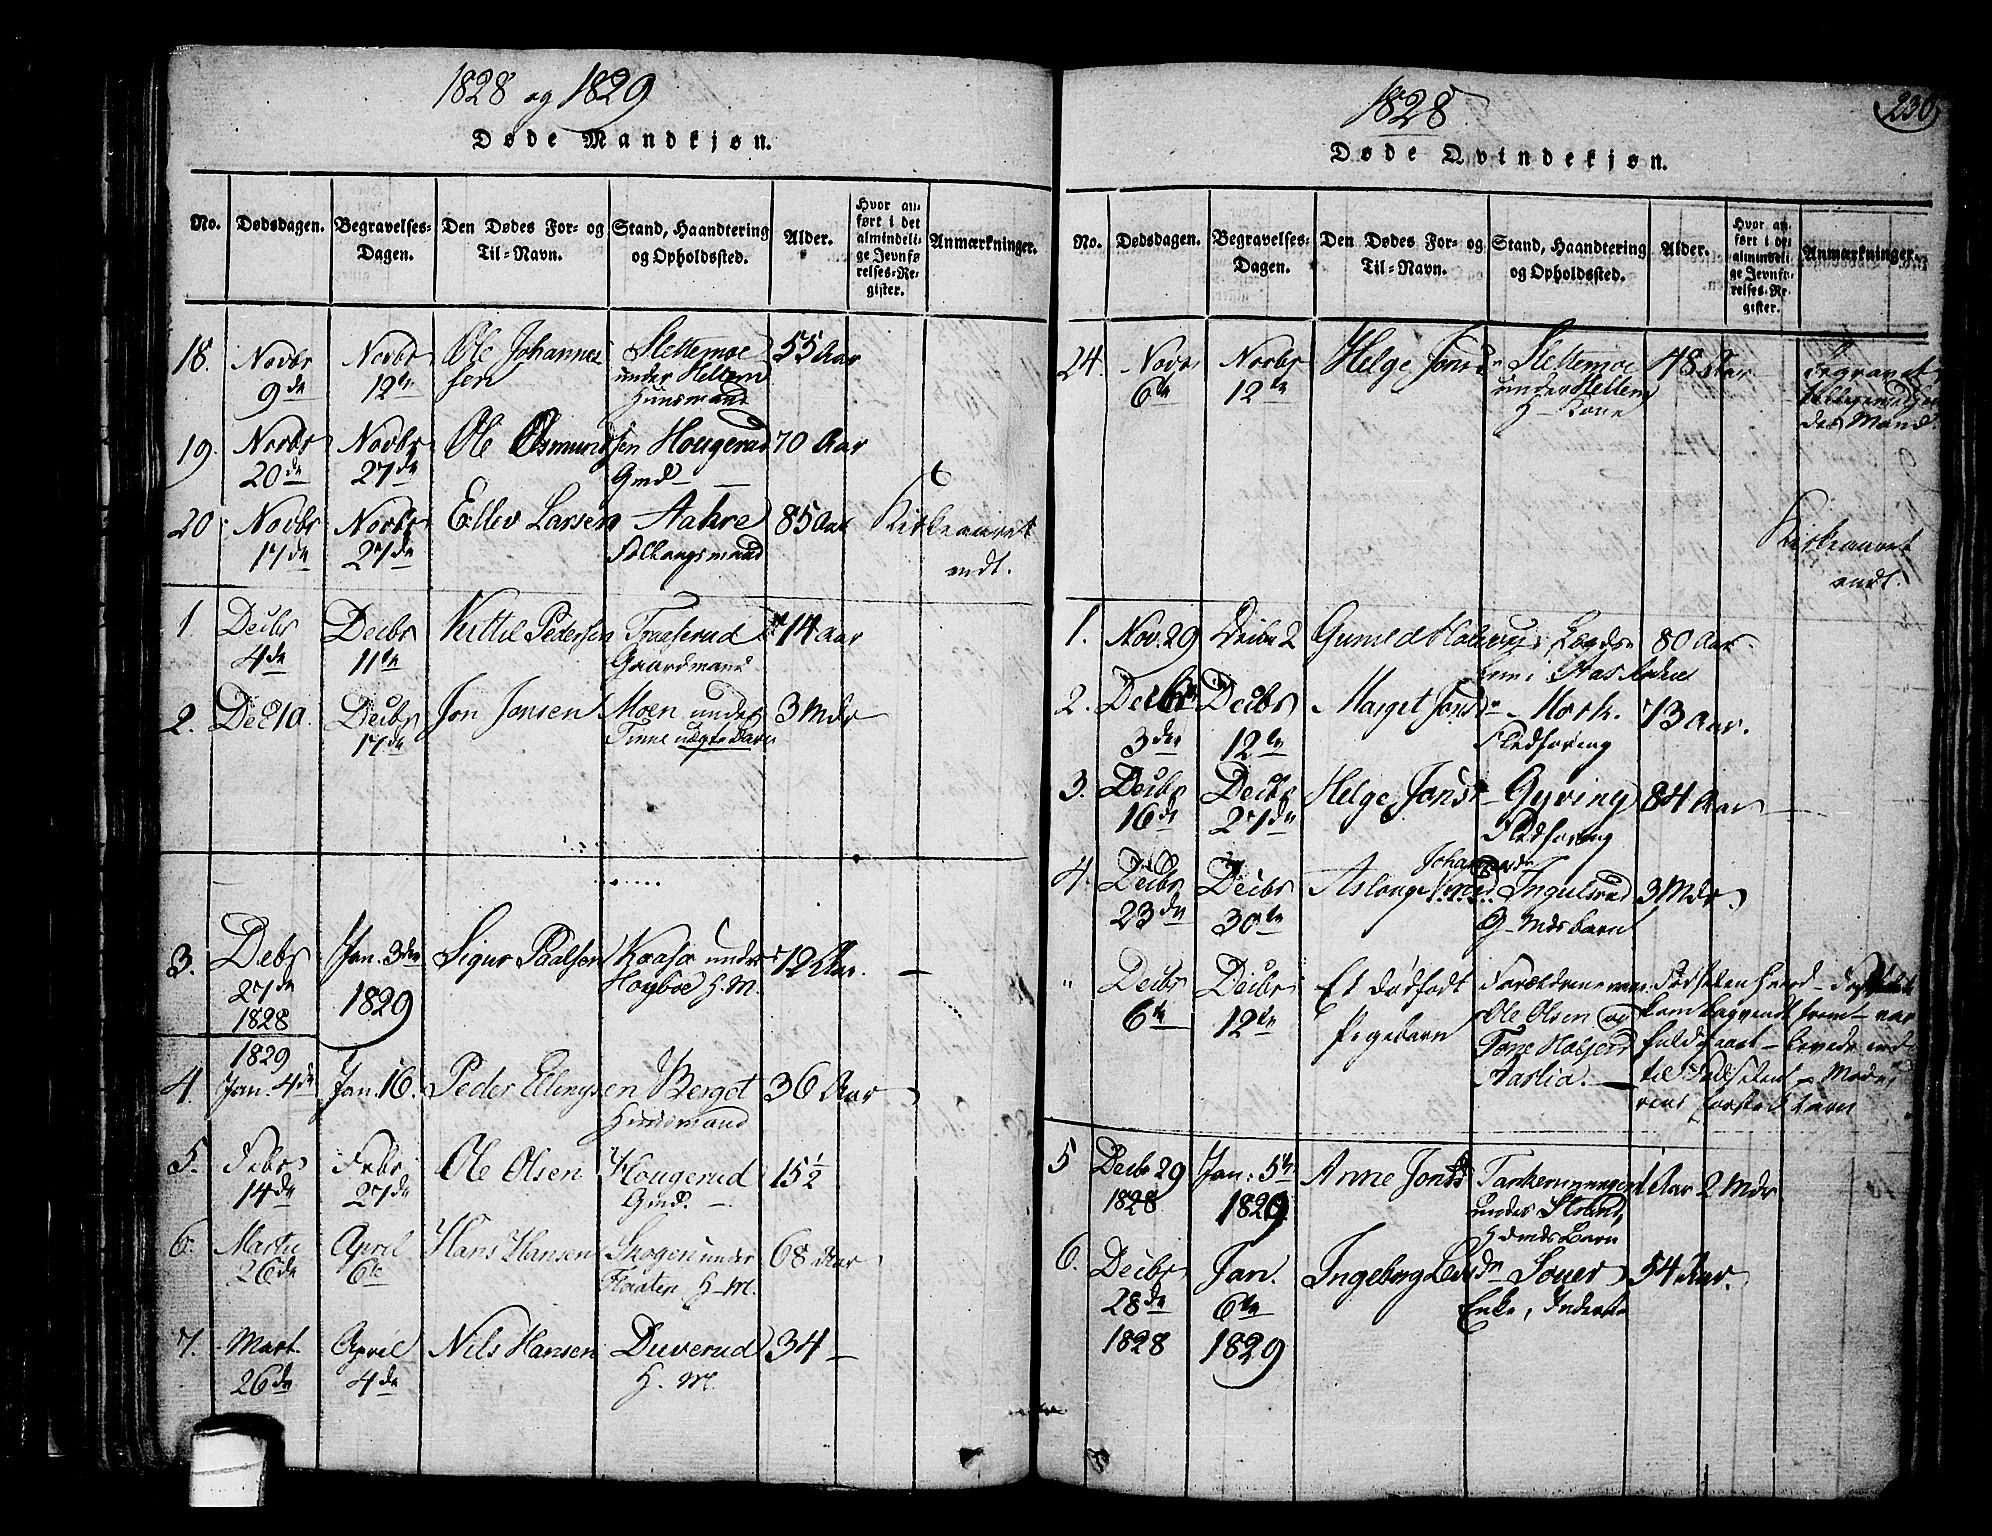 1828 og 1829
Døde Mandkjøn.
No. Dødsdagen. Begravelses-Dagen. Den Dødes For- og Til-Navn. Stand, Haandtering og Opholdssted. Alder. Hvor anført i det almindelige Jevnførelses-Register. Anmærkninger.
18. Novbr 9de Novbr 12te Ole Johannessen Slettemoe under Hellem Huusmand 55 Aar
19. Novbr 20de Novbr 27de Ole Osmundsen Hougerud Gmd 70 Aar
20 Novbr 17de Novbr 27de Ellev Larsen Aahre 85 Aar Kirkeaaret endt.
1. Decbr 4de Decbr 11te Kittil Pedersen Traserud Gaardmand 74 Aar
2. Dec 10. Decbr 17de Jon Jonsen Moen under Tinne uægte Barn 3 Mdr
3. Debr 27de 1828 Jan. 3die 1829 Sigur Paalsen Kaasa under Houbøe H. M. 72 Aar.
1829
4. Jan. 4de Jan. 16. Peder Ellingsen Berget Huusmand 36 Aar
5. Febr 14de Febr 27de Ole Olsen Hougerud Gmd. 15 1/2
6. Martii 26de April 6te Hans Hansen Skogen under Flaaten H. M. 68 Aar
7. Mart. 26de April 4de Nils Hansen Duverud H. M. 34
1828
230
Døde Qvindekjøn.
No. Dødsdagen. Begravelses-Dagen. Den Dødes For- og Til-Navn. Stand, Haandtering og Opholdssted. Alder. Hvor anført i det almindelige Jevnførelses-Register. Anmærkninger.
24. Novbr 6te Novbr 12te Helge Jonsd. Slettemoe under Hellem H- Kone 48 Aar Begravet deres Mand.
Kirkeaaret endt.
1. Nov. 29 Decbr 2 Gunild 80 Aar.
2. Decbr 3die Decbr 12te Marget Jonsdr Mork. Fledføring 73 Aar.
3. Decbr 16de Decbr 27de Helge Jonsdr Gyving Fledføring 84 Aar
4. Decbr 23de Decbr 30te Aslaug Johannesdr Ingulsrud G-mdsbarn 3 Mdr.
" Decbr 6te Decbr 12te Et dødfødt Pigebarn Forældrene var Ole Olsen og Tone Aaslia. Fødselen haard
kom bagvendt frem - var
fuldbaaret - levede indtil
Fødselen - Moderens
første Barn
5 Decbr 29 1828 Jan. 5te 1829 Anne Jonsdr under Stoland, Hmds Barn 1 Aar 2 Mdr
6. Decbr 28de 1828 Jan. 6te 1829 Ingeborg Souer Enke, Inderst 54 Aar.